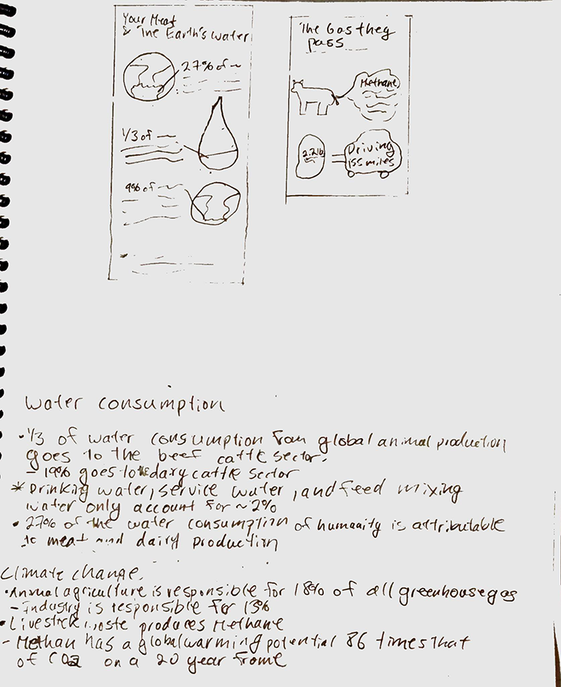 Your Meat
& The Earth's Water
27% of
1/3 of
9% of
The Gas they
pass
Methane
2.2lb
Driving
155 miles
Water consumption
• 1/3 of water consumption from global animal production
goes to the beef cattle sector.
- 19% goes to the dairy cattle sector
* Drinking water, service water, and feed mixing
water only account for ~2%
• 27% of the water consumption of humanity is attributable
to meat and dairy production
Climate change
• Animal agriculture is responsible for 18% of all greenhouse gas
- Industry is responsible for 13%
• Livestock waste produces Methane
- Methan has a global warming potential 86 times that
of CO2 on a 20 year frame